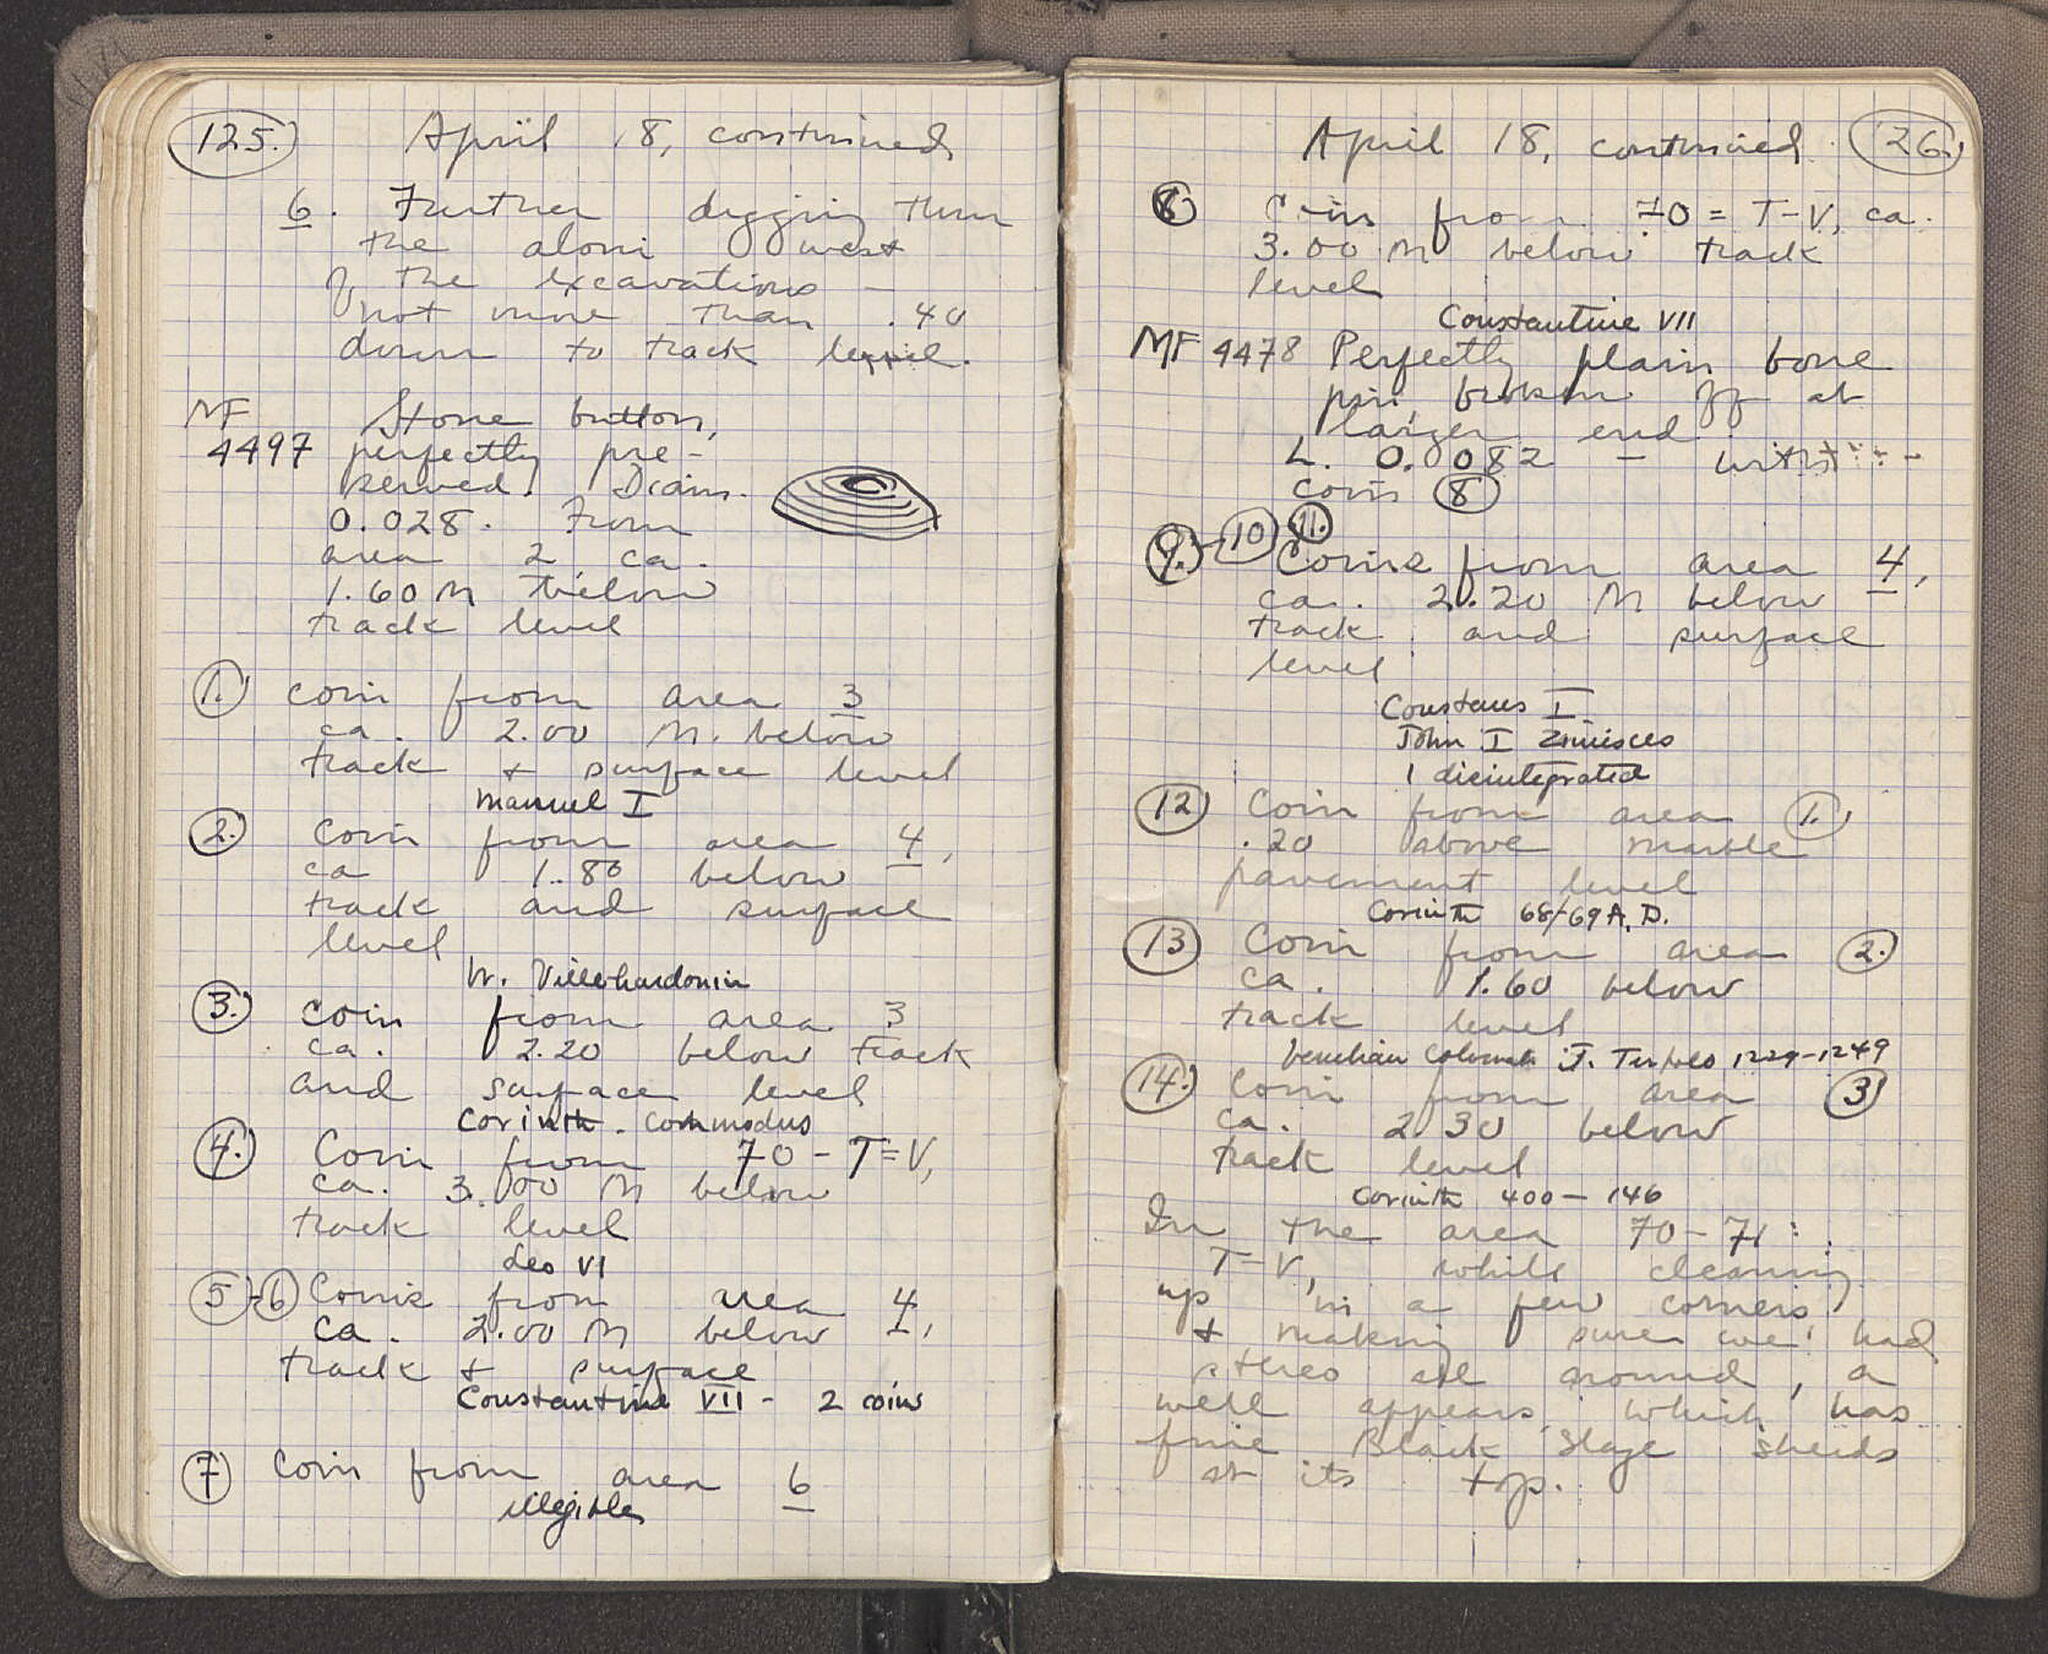 125.
April 18, continued
6. Further digging thru
the aloni west
of the excavations -
not more than .40
down to track level.
MF
4497
Stone button,
perfectly pre-
served. Diam.
0.028. From
area 2 ca.
1.60 M below
track level
1. Coin from area 3
ca. 2.00 M. below
track + surface level
Manuel I
2. Coin from area 4,
ca 1.80 below
track and surface
level
W. Villehardouin
3. Coin from area 3
ca. 2.20 below track
and surface level
Corinth. Commodus
4. Coin from 70 - T=V,
ca. 3.00 M below
track level
Leo VI
5-6 Coins from area 4,
ca. 2.00 M below
track + surface
Constantine VII - 2 coins
7 Coin from area 6
illegible
April 18, continued
126.
8 Coin from 70 = T-V, ca.
3.00 M below track
level
Constantine VII
MF 4478 Perfectly plain bone
pin, broken off at
larger end.
L. 0.082 - with
coin 8
9.-10 11.
Coins from area 4,
ca. 2.20 M below
track and surface
level
Constans I
John I Zimisces
1 disintegrated
12 Coin from area 1.
.20 above marble
pavement level
Corinth 68/69 A.D.
13 Coin from area 2.
ca. 1.60 below
track level
Venetian Colonial J. Tiepolo 1229-1249
14. Coin from area 3
ca. 2.30 below
track level
Corinth 400-146
In the area 70-71:
T-V, while cleaning
up in a few corners
+ making sure we had
stereo all around, a
well appears which has
fine Black Glaze sherds
at its top.